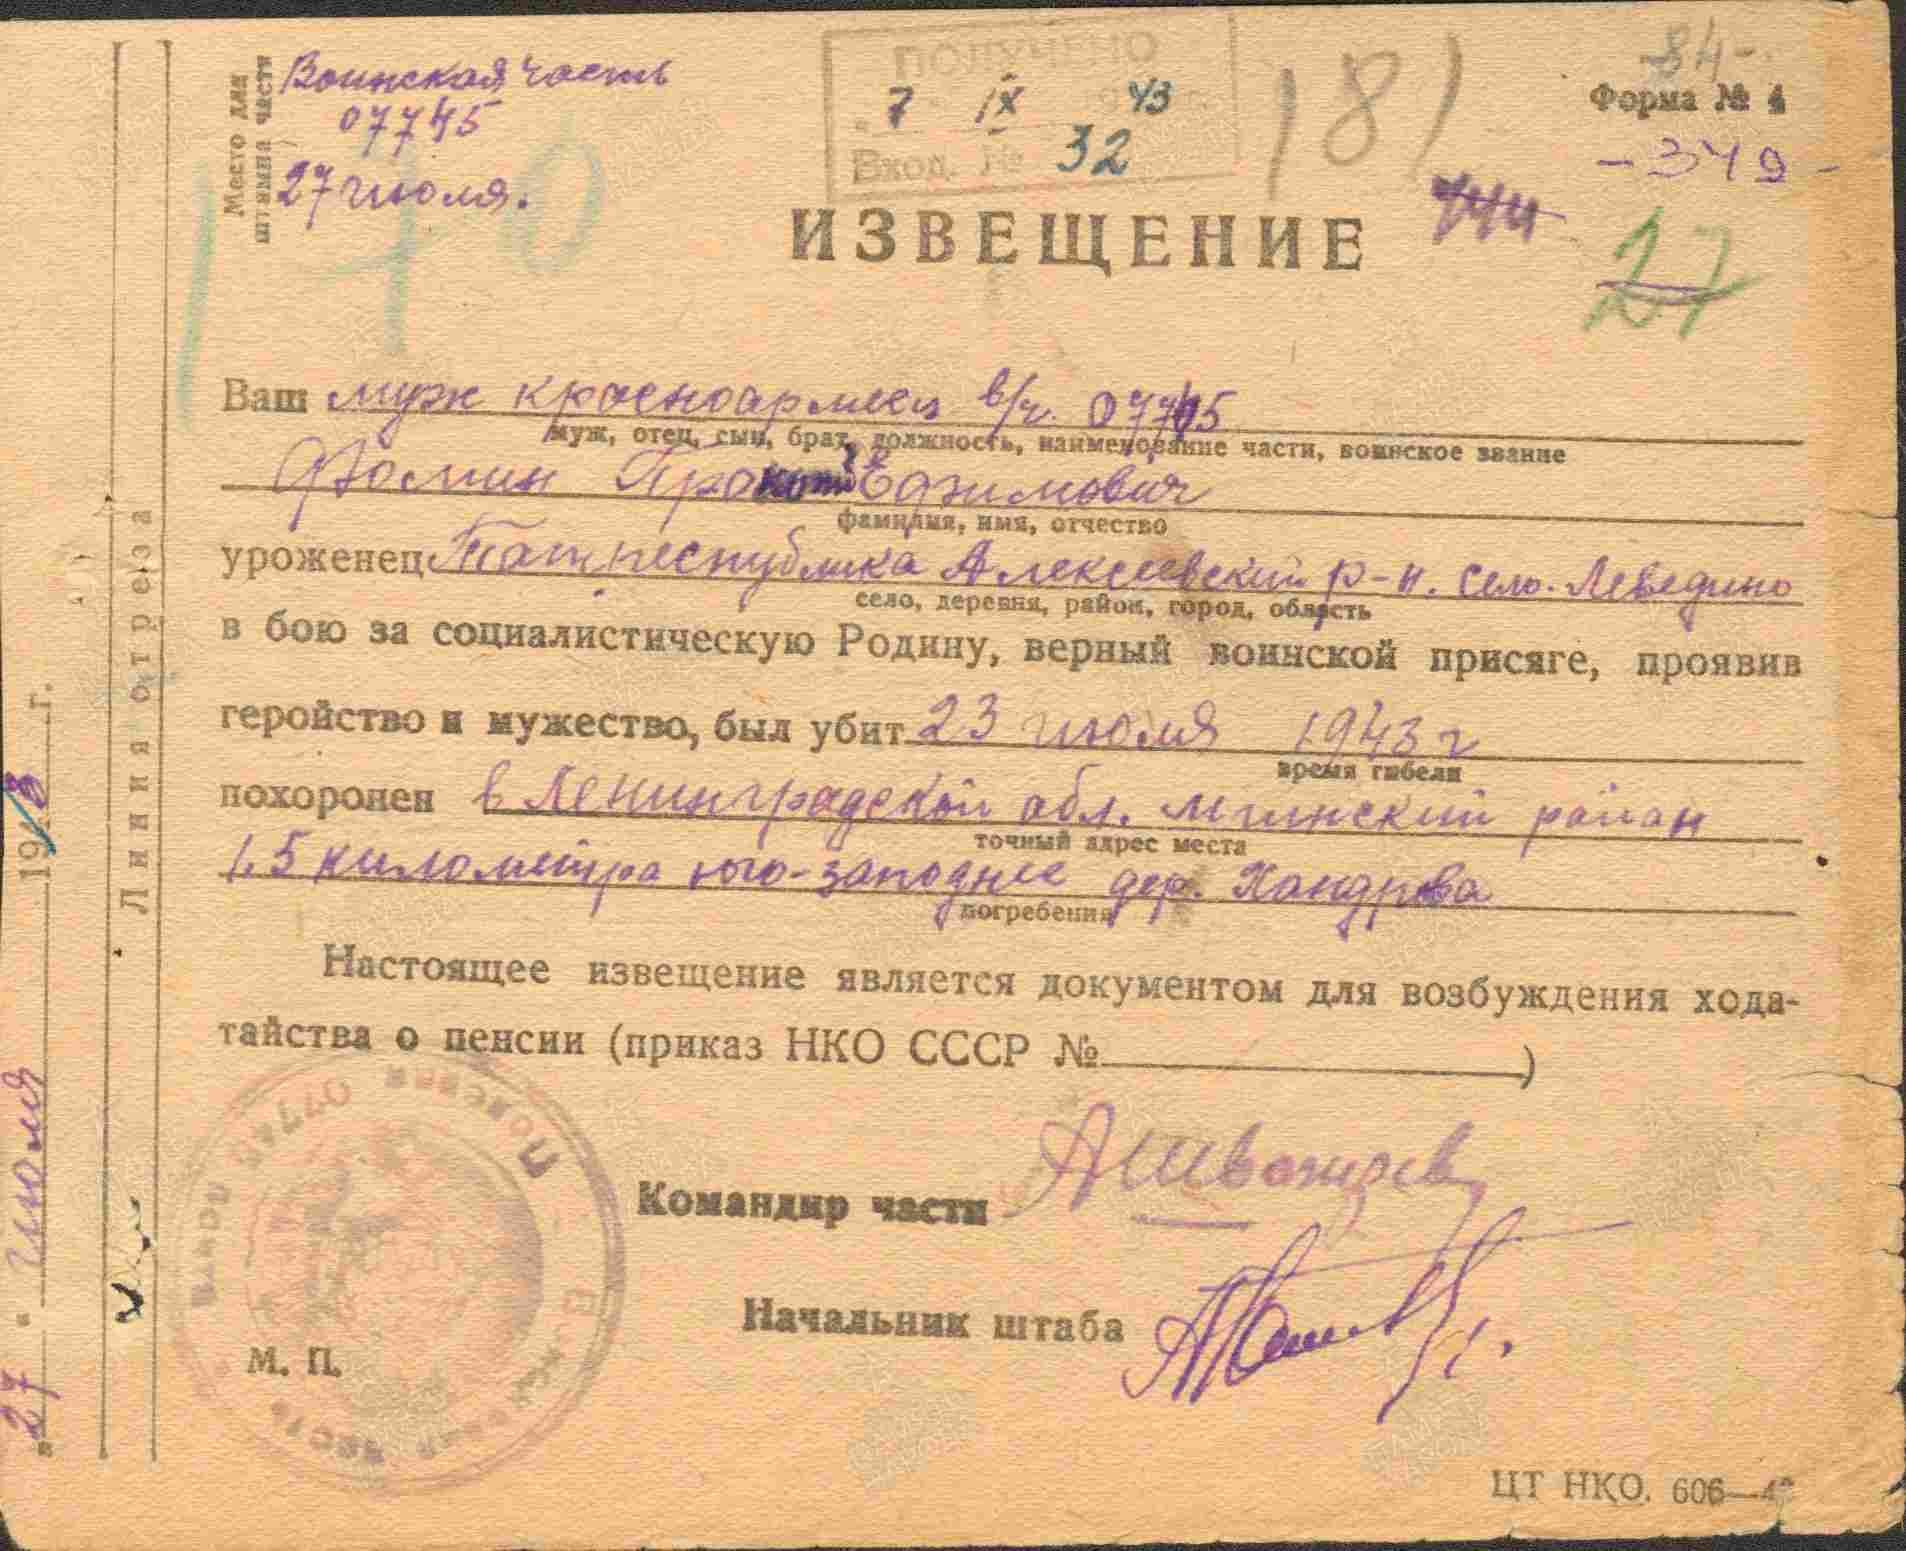 Место для
штампа части
Воинская часть
07745
27 июля.
ПОЛУЧЕНО
7 IX 43
Вход. № 32
181
84-
Форма № 4
- 349 -
27
170
ИЗВЕЩЕНИЕ
Ваш муж красноармеец в/ч. 07745
муж, отец, сын, брат, должность, наименование части, воинское звание
Фомин Прокоп Ефимович
фамилия, имя, отчество
уроженец Татреспублика Алексеевский р-н. село. Леведино
село, деревня, район, город, область
в бою за социалистическую Родину, верный воинской присяге, проявив
геройство и мужество, был убит 23 июля 1943 г
время гибели
похоронен в Ленинградской обл. Мгинский район
точный адрес места
1,5 километра юго-западнее дер. Хандрова
погребения
Настоящее извещение является документом для возбуждения хода-
тайства о пенсии (приказ НКО СССР № )
Командир части
Начальник штаба
М. П.
ЦТ НКО. 606—4
Линия отреза
„27" июля 1943 г.